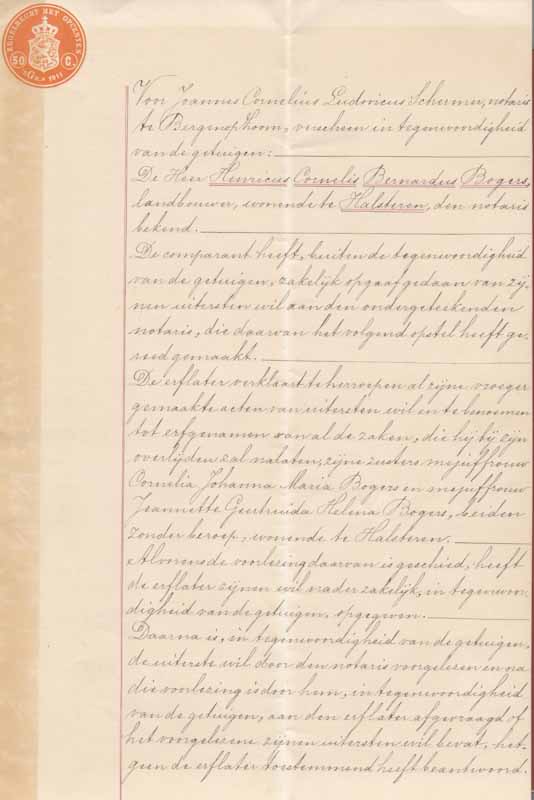 ZEGELRECHT MET OPCENTEN
50 C.
1911
Voor Joannes Cornelius Ludovicus Schermer, notaris
te Bergen op Zoom, verscheen in tegenwoordigheid
van de getuigen:
De Heer Henricus Cornelis Bernardus Bogers,
landbouwer, wonende te Halsteren, den notaris
bekend.
De comparant heeft, buiten de tegenwoordigheid
van de getuigen, zakelijk opgaaf gedaan van zij-
nen uitersten wil aan den ondergeteekenden
notaris, die daarvan het volgend opstel heeft ge-
reed gemaakt.
De erflater verklaart te herroepen al zijne vroeger
gemaakte acten van uitersten wil en te benoemen
tot erfgenamen van al de zaken, die hij bij zijn
overlijden zal nalaten, zijne zusters mejuffrouw
Cornelia Johanna Maria Bogers en mejuffrouw
Jeannette Geertruida Helena Bogers, beiden
zonder beroep, wonende te Halsteren.
Alvorens de voorlezing daarvan is geschied, heeft
de erflater zijnen wil nader zakelijk, in tegenwoor-
digheid van de getuigen, opgegeven.
Daarna is, in tegenwoordigheid van de getuigen,
de uiterste wil door den notaris voorgelezen en na
die voorlezing is door hem, in tegenwoordigheid
van de getuigen, aan den erflater afgevraagd of
het voorgelezene zijnen uitersten wil bevat, het-
geen de erflater toestemmend heeft beantwoord.